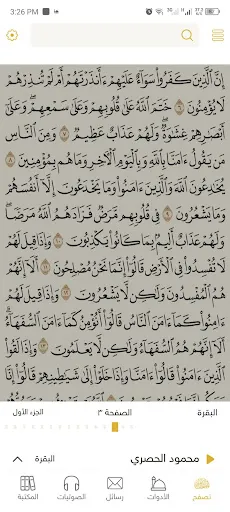 3:26 PM
إِنَّ الَّذِينَ كَفَرُوا سَوَاءٌ عَلَيْهِمْ ءَأَنذَرْتَهُمْ أَمْ لَمْ تُنذِرْهُمْ
لَا يُؤْمِنُونَ ٦ خَتَمَ اللَّهُ عَلَىٰ قُلُوبِهِمْ وَعَلَىٰ سَمْعِهِمْ وَعَلَىٰ
أَبْصَٰرِهِمْ غِشَٰوَةٌ وَلَهُمْ عَذَابٌ عَظِيمٌ ٧ وَمِنَ النَّاسِ
مَن يَقُولُ ءَامَنَّا بِاللَّهِ وَبِالْيَوْمِ الْءَاخِرِ وَمَا هُم بِمُؤْمِنِينَ ٨
يُخَٰدِعُونَ اللَّهَ وَالَّذِينَ ءَامَنُوا وَمَا يَخْدَعُونَ إِلَّا أَنفُسَهُمْ
وَمَا يَشْعُرُونَ ٩ فِي قُلُوبِهِم مَّرَضٌ فَزَادَهُمُ اللَّهُ مَرَضًا
وَلَهُمْ عَذَابٌ أَلِيمٌ بِمَا كَانُوا يَكْذِبُونَ ١٠ وَإِذَا قِيلَ لَهُمْ
لَا تُفْسِدُوا فِي الْأَرْضِ قَالُوا إِنَّمَا نَحْنُ مُصْلِحُونَ ١١ أَلَا إِنَّهُمْ
هُمُ الْمُفْسِدُونَ وَلَٰكِن لَّا يَشْعُرُونَ ١٢ وَإِذَا قِيلَ لَهُمْ
ءَامِنُوا كَمَا ءَامَنَ النَّاسُ قَالُوا أَنُؤْمِنُ كَمَا ءَامَنَ السُّفَهَاءُ أَلَا
إِنَّهُمْ هُمُ السُّفَهَاءُ وَلَٰكِن لَّا يَعْلَمُونَ ١٣ وَإِذَا لَقُوا
الَّذِينَ ءَامَنُوا قَالُوا ءَامَنَّا وَإِذَا خَلَوْا إِلَىٰ شَيَٰطِينِهِمْ قَالُوا
البقرة الصفحة ٣ الجزء الأول
محمود الحصري البقرة
تصفح الأدوات رسائل الصوتيات المكتبة